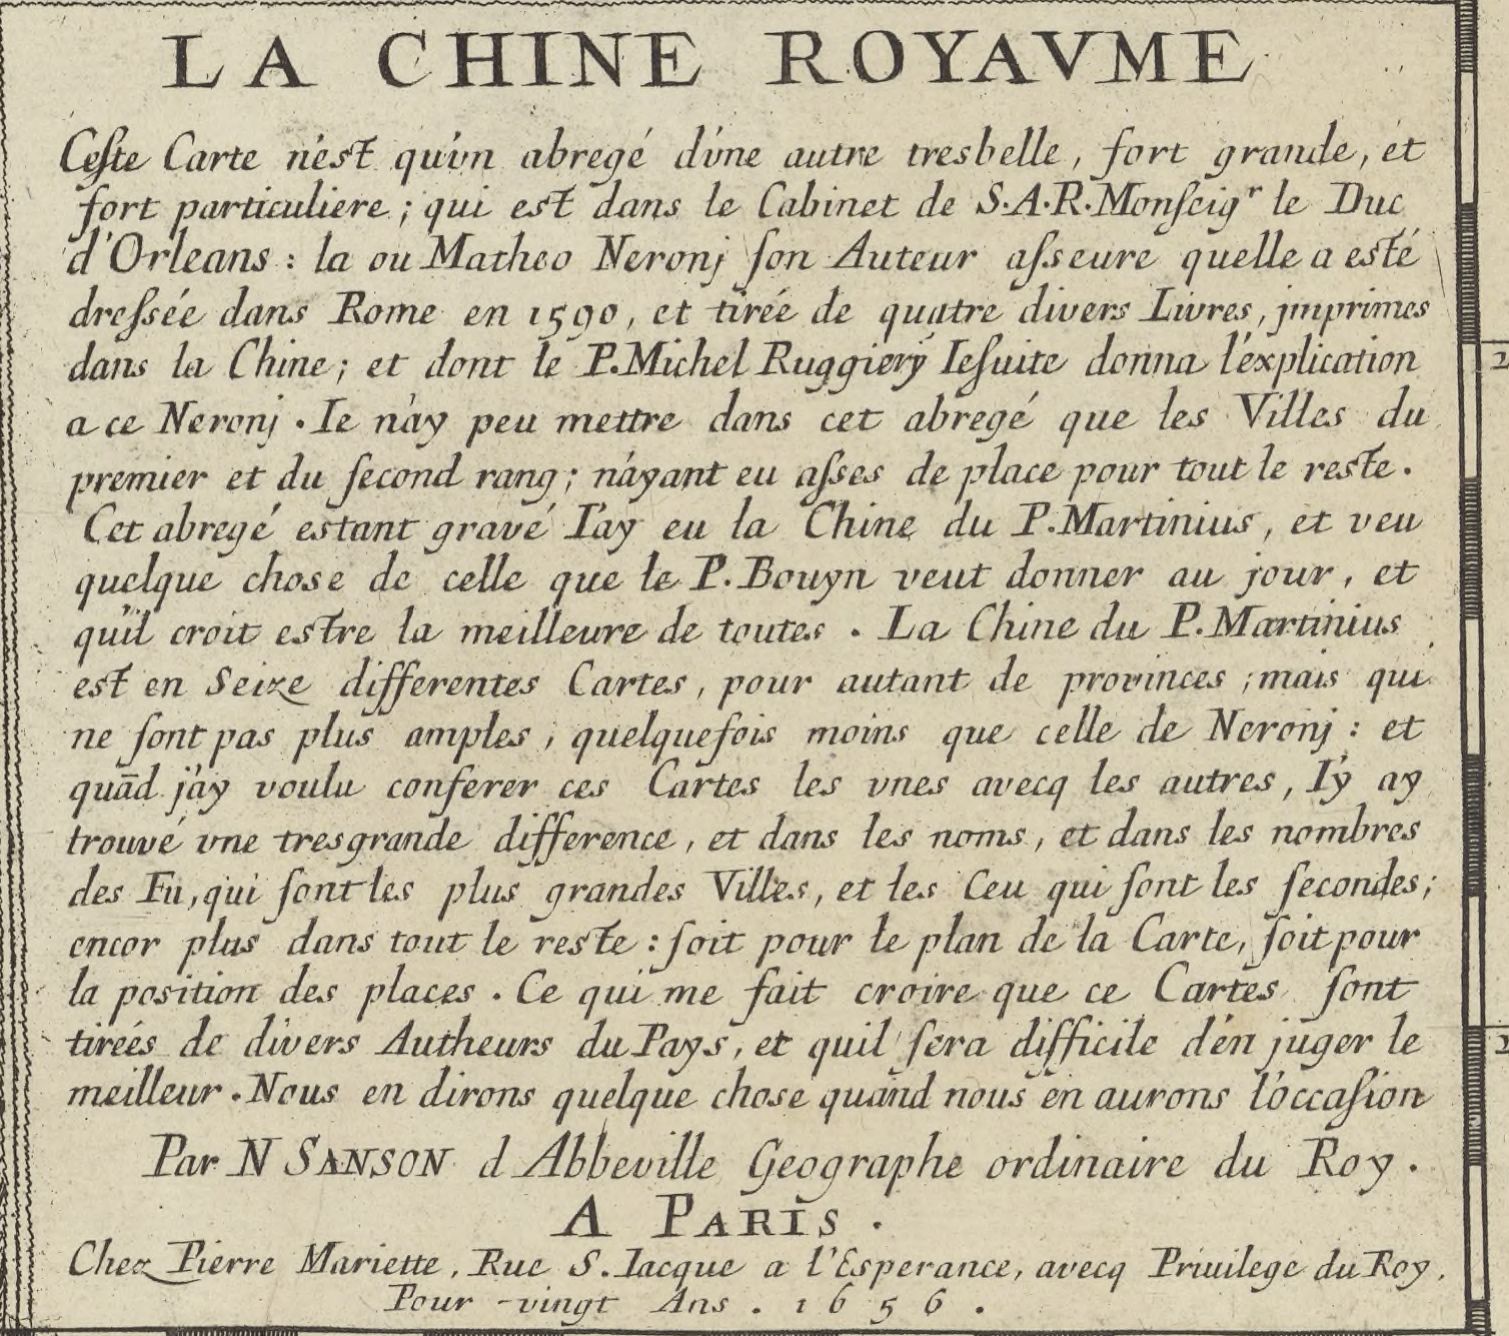 LA CHINE ROYAVME
Ceſte Carte n'est qu'vn abregé d'vne autre tresbelle, fort grande, et
fort particuliere; qui est dans le Cabinet de S.A.R. Monſeigr le Duc
d'Orleans: la ou Matheo Neronj ſon Auteur aſseure quelle a esté
dreſsée dans Rome en 1590, et tirée de quatre divers Livres, jmprimes
dans la Chine; et dont le P. Michel Ruggierÿ Ieſuite donna l'explication
a ce Neronj. Ie n'ay peu mettre dans cet abregé que les Villes du
premier et du ſecond rang; n'ayant eu aſses de place pour tout le reste.
Cet abregé estant gravé I'ay eu la Chine du P. Martinius, et veu
quelque chose de celle que le P. Bouyn veut donner au jour, et
qu'il croit estre la meilleure de toutes. La Chine du P. Martinius
est en Seize differentes Cartes, pour autant de provinces; mais qui
ne ſont pas plus amples, quelquefois moins que celle de Neronj: et
quād j'ay voulu conferer ces Cartes les vnes avecq les autres, I'y ay
trouvé vne tresgrande difference, et dans les noms, et dans les nombres
des Fu, qui ſont les plus grandes Villes, et les Ceu qui ſont les ſecondes;
encor plus dans tout le reste: ſoit pour le plan de la Carte, ſoit pour
la position des places. Ce qui me fait croire que ce Cartes ſont
tireés de divers Autheurs du Pays, et quil ſera difficile d'en juger le
meilleur. Nous en dirons quelque chose quand nous en aurons l'occaſion
Par N SANSON d Abbeville Geographe ordinaire du Roy.
A PARIS.
Chez Pierre Mariette, Rue S. Iacque a l'Esperance, avecq Priuilege du Roy,
Pour vingt Ans. 1656.